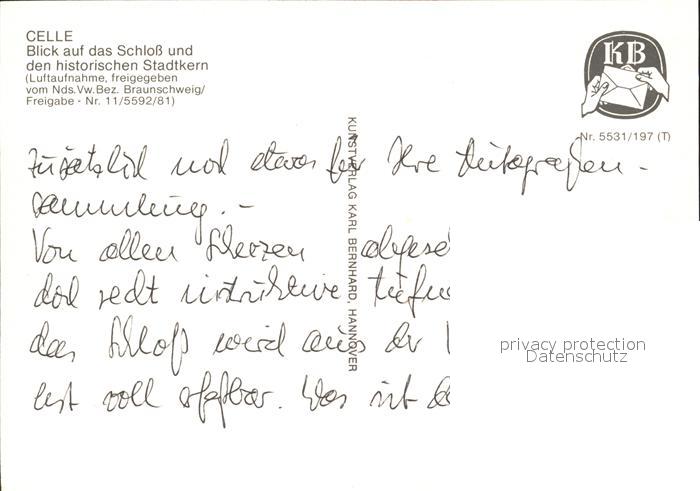 CELLE
Blick auf das Schloß und
den historischen Stadtkern
(Luftaufnahme, freigegeben
vom Nds.Vw.Bez. Braunschweig/
Freigabe - Nr. 11/5592/81)
KB
Nr. 5531/197 (T)
KUNSTVERLAG KARL BERNHARD, HANNOVER
Zusätzlich noch etwas für Ihre Autografen-
sammlung. -
Von allen Scherzen abgese
doch recht instruktive
das Schloß wird aus der
erst voll erfaßbar. Was ist
privacy protection
Datenschutz